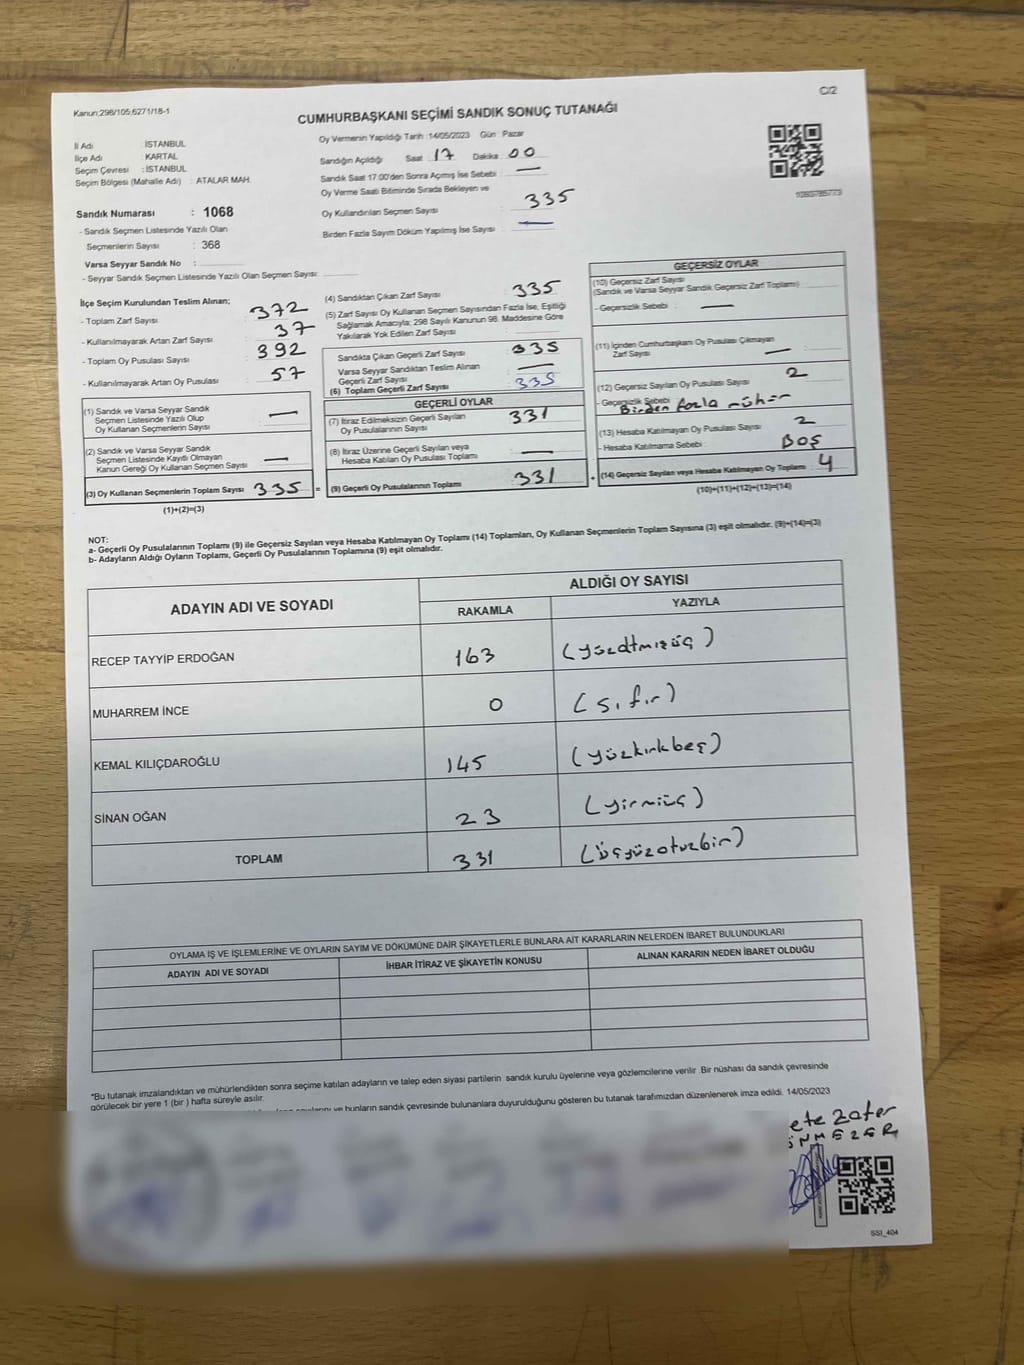 Kanun:298/105;6271/18-1
C/2
CUMHURBAŞKANI SEÇİMİ SANDIK SONUÇ TUTANAĞI
İl Adı : İSTANBUL
İlçe Adı : KARTAL
Seçim Çevresi : İSTANBUL
Seçim Bölgesi (Mahalle Adı) : ATALAR MAH.
Oy Vermenin Yapıldığı Tarih :14/05/2023 Gün : Pazar
Sandığın Açıldığı Saat : 17 Dakika : 00
Sandık Saat 17:00'den Sonra Açılmış İse Sebebi : —
Oy Verme Saati Bitiminde Sırada Bekleyen ve
Oy Kullandırılan Seçmen Sayısı : 335
Birden Fazla Sayım Döküm Yapılmış İse Sayısı : —
Sandık Numarası : 1068
- Sandık Seçmen Listesinde Yazılı Olan
Seçmenlerin Sayısı : 368
Varsa Seyyar Sandık No :
- Seyyar Sandık Seçmen Listesinde Yazılı Olan Seçmen Sayısı:
İlçe Seçim Kurulundan Teslim Alınan;
- Toplam Zarf Sayısı : 372
- Kullanılmayarak Artan Zarf Sayısı : 37
- Toplam Oy Pusulası Sayısı : 392
- Kullanılmayarak Artan Oy Pusulası : 57
(1) Sandık ve Varsa Seyyar Sandık
Seçmen Listesinde Yazılı Olup
Oy Kullanan Seçmenlerin Sayısı —
(2) Sandık ve Varsa Seyyar Sandık
Seçmen Listesinde Kayıtlı Olmayan
Kanun Gereği Oy Kullanan Seçmen Sayısı —
(3) Oy Kullanan Seçmenlerin Toplam Sayısı 335 =
(1)+(2)=(3)
(4) Sandıktan Çıkan Zarf Sayısı : 335
(5) Zarf Sayısı Oy Kullanan Seçmen Sayısından Fazla İse, Eşitliği
Sağlamak Amacıyla; 298 Sayılı Kanunun 98. Maddesine Göre
Yakılarak Yok Edilen Zarf Sayısı :
Sandıkta Çıkan Geçerli Zarf Sayısı : 335
Varsa Seyyar Sandıktan Teslim Alınan
Geçerli Zarf Sayısı : —
(6) Toplam Geçerli Zarf Sayısı : 335
GEÇERLİ OYLAR
(7) İtiraz Edilmeksizin Geçerli Sayılan
Oy Pusulalarının Sayısı : 331
(8) İtiraz Üzerine Geçerli Sayılan veya
Hesaba Katılan Oy Pusulası Toplamı : —
(9) Geçerli Oy Pusulalarının Toplamı : 331 +
GEÇERSİZ OYLAR
(10) Geçersiz Zarf Sayısı
(Sandık ve Varsa Seyyar Sandık Geçersiz Zarf Toplamı) :
- Geçersizlik Sebebi : —
(11) İçinden Cumhurbaşkanı Oy Pusulası Çıkmayan
Zarf Sayısı : —
(12) Geçersiz Sayılan Oy Pusulası Sayısı : 2
- Geçersizlik Sebebi : Birden fazla mühür
(13) Hesaba Katılmayan Oy Pusulası Sayısı : 2
- Hesaba Katılmama Sebebi : BOŞ
(14) Geçersiz Sayılan veya Hesaba Katılmayan Oy Toplamı : 4
(10)+(11)+(12)+(13)=(14)
NOT:
a- Geçerli Oy Pusulalarının Toplamı (9) ile Geçersiz Sayılan veya Hesaba Katılmayan Oy Toplamı (14) Toplamları, Oy Kullanan Seçmenlerin Toplam Sayısına (3) eşit olmalıdır. (9)+(14)=(3)
b- Adayların Aldığı Oyların Toplamı, Geçerli Oy Pusulalarının Toplamına (9) eşit olmalıdır.
ADAYIN ADI VE SOYADI ALDIĞI OY SAYISI
RAKAMLA YAZIYLA
RECEP TAYYİP ERDOĞAN 163 (yüzaltmışüç)
MUHARREM İNCE 0 (sıfır)
KEMAL KILIÇDAROĞLU 145 (yüzkırkbeş)
SİNAN OĞAN 23 (yirmiüç)
TOPLAM 331 (üçyüzotuzbir)
OYLAMA İŞ VE İŞLEMLERİNE VE OYLARIN SAYIM VE DÖKÜMÜNE DAİR ŞİKAYETLERLE BUNLARA AİT KARARLARIN NELERDEN İBARET BULUNDUKLARI
ADAYIN ADI VE SOYADI İHBAR İTİRAZ VE ŞİKAYETİN KONUSU ALINAN KARARIN NEDEN İBARET OLDUĞU
*Bu tutanak imzalandıktan ve mühürlendikten sonra seçime katılan adayların ve talep eden siyasi partilerin sandık kurulu üyelerine veya gözlemcilerine verilir. Bir nüshası da sandık çevresinde
görülecek bir yere 1 (bir) hafta süreyle asılır.
ve bunların sandık çevresinde bulunanlara duyurulduğunu gösteren bu tutanak tarafımızdan düzenlenerek imza edildi. 14/05/2023
ete Zafer
SSI_404